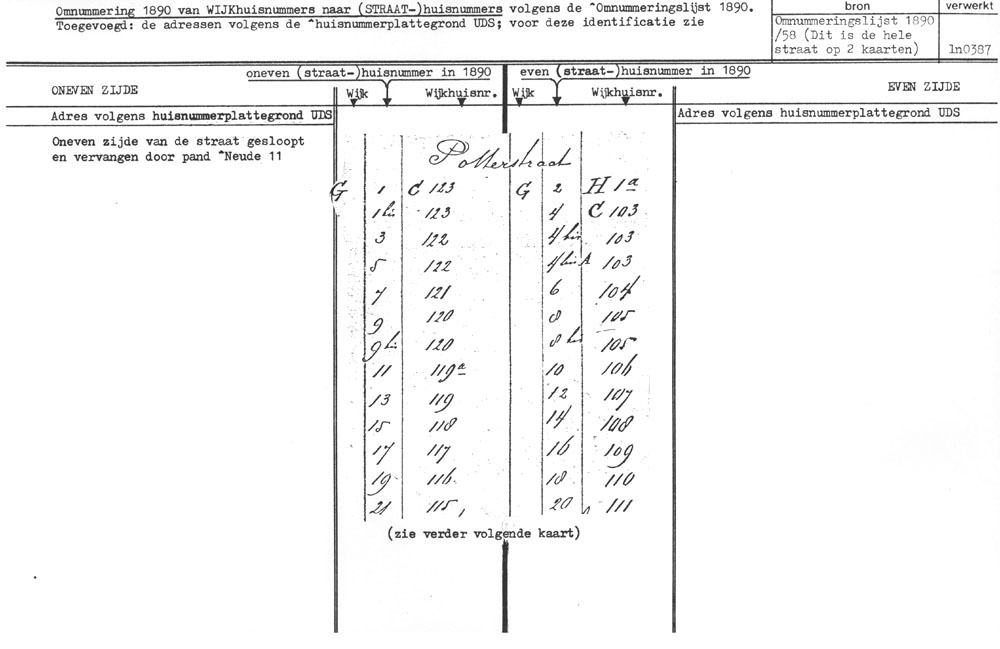 Omnummering 1890 van WIJKhuisnummers naar (STRAAT-)huisnummers volgens de ^Omnummeringslijst 1890.
Toegevoegd: de adressen volgens de ^huisnummerplattegrond UDS; voor deze identificatie zie
bron
verwerkt
Omnummeringslijst 1890
/58 (Dit is de hele
straat op 2 kaarten)
ln0387
oneven (straat-)huisnummer in 1890
even (straat-)huisnummer in 1890
ONEVEN ZIJDE
Wijk
Wijkhuisnr.
Wijk
Wijkhuisnr.
EVEN ZIJDE
Adres volgens huisnummerplattegrond UDS
Adres volgens huisnummerplattegrond UDS
Oneven zijde van de straat gesloopt
en vervangen door pand ^Neude 11
Potterstraat
G 1 C 123 G 2 H 1a
1 bis 123 4 C 103
3 122 4 bis 103
5 122 4 bis A 103
7 121 6 104
9 120 8 105
9 bis 120 8 bis 105
11 119a 10 106
13 119 12 107
15 118 14 108
17 117 16 109
19 116 18 110
21 115 20 111
(zie verder volgende kaart)